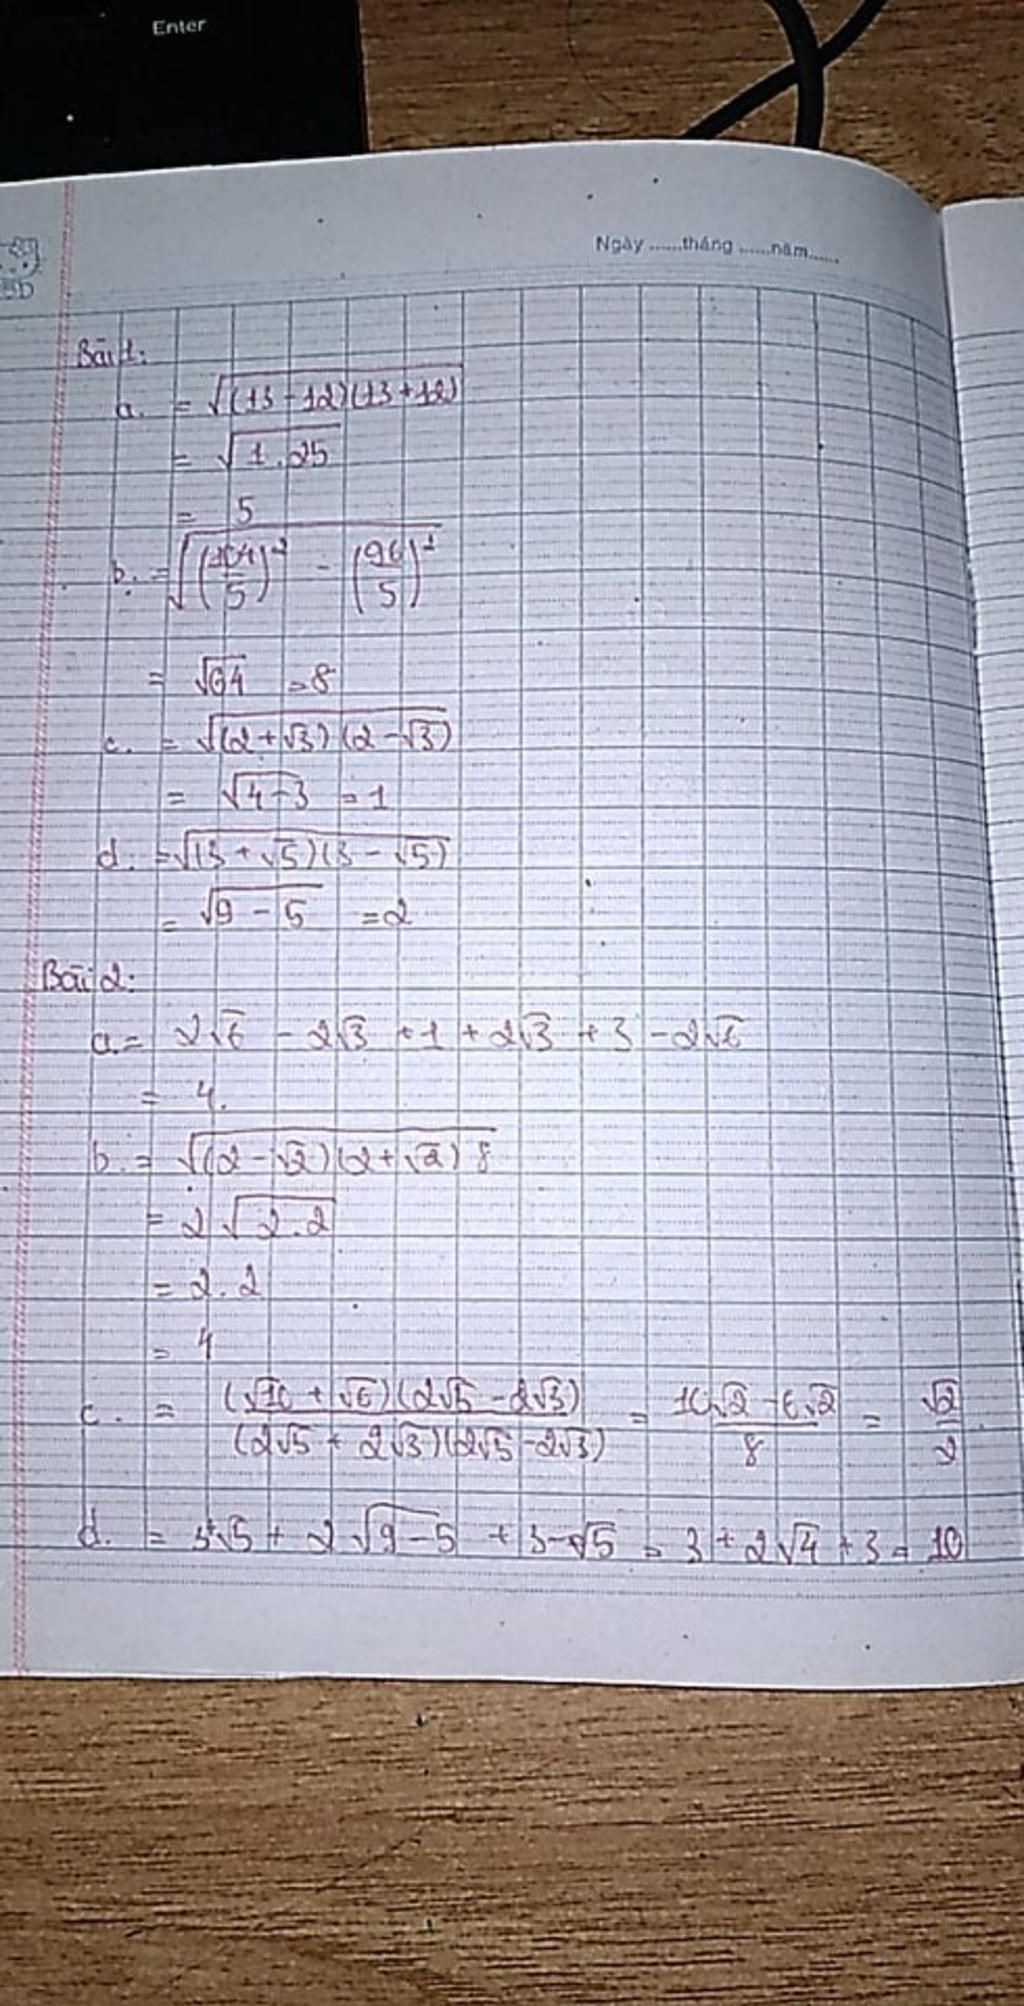 Enter
Ngày ......tháng ......năm......
Bài 1:
a. = √((13 - 12)(13 + 12))
= √(1 . 25)
= 5
b. = √((104/5)² - (96/5)²)
= √64 = 8
c. = √((2 + √3)(2 - √3))
= √(4 - 3) = 1
d. = √((3 + √5)(3 - √5))
= √(9 - 5) = 2
Bài 2:
a. = 2√6 - 2√3 + 1 + 2√3 + 3 - 2√6
= 4.
b. = √((2 - √2)(2 + √2) 8
= 2√(2.2)
= 2.2
= 4
c. = (√10 + √6)(2√5 - 2√3)/(2√5 + 2√3)(2√5 - 2√3) = 10√2 - 6√2/8 = √2/2
d. = 3+√5 + 2√(9-5) + 3-√5 = 3 + 2√4 + 3 = 10